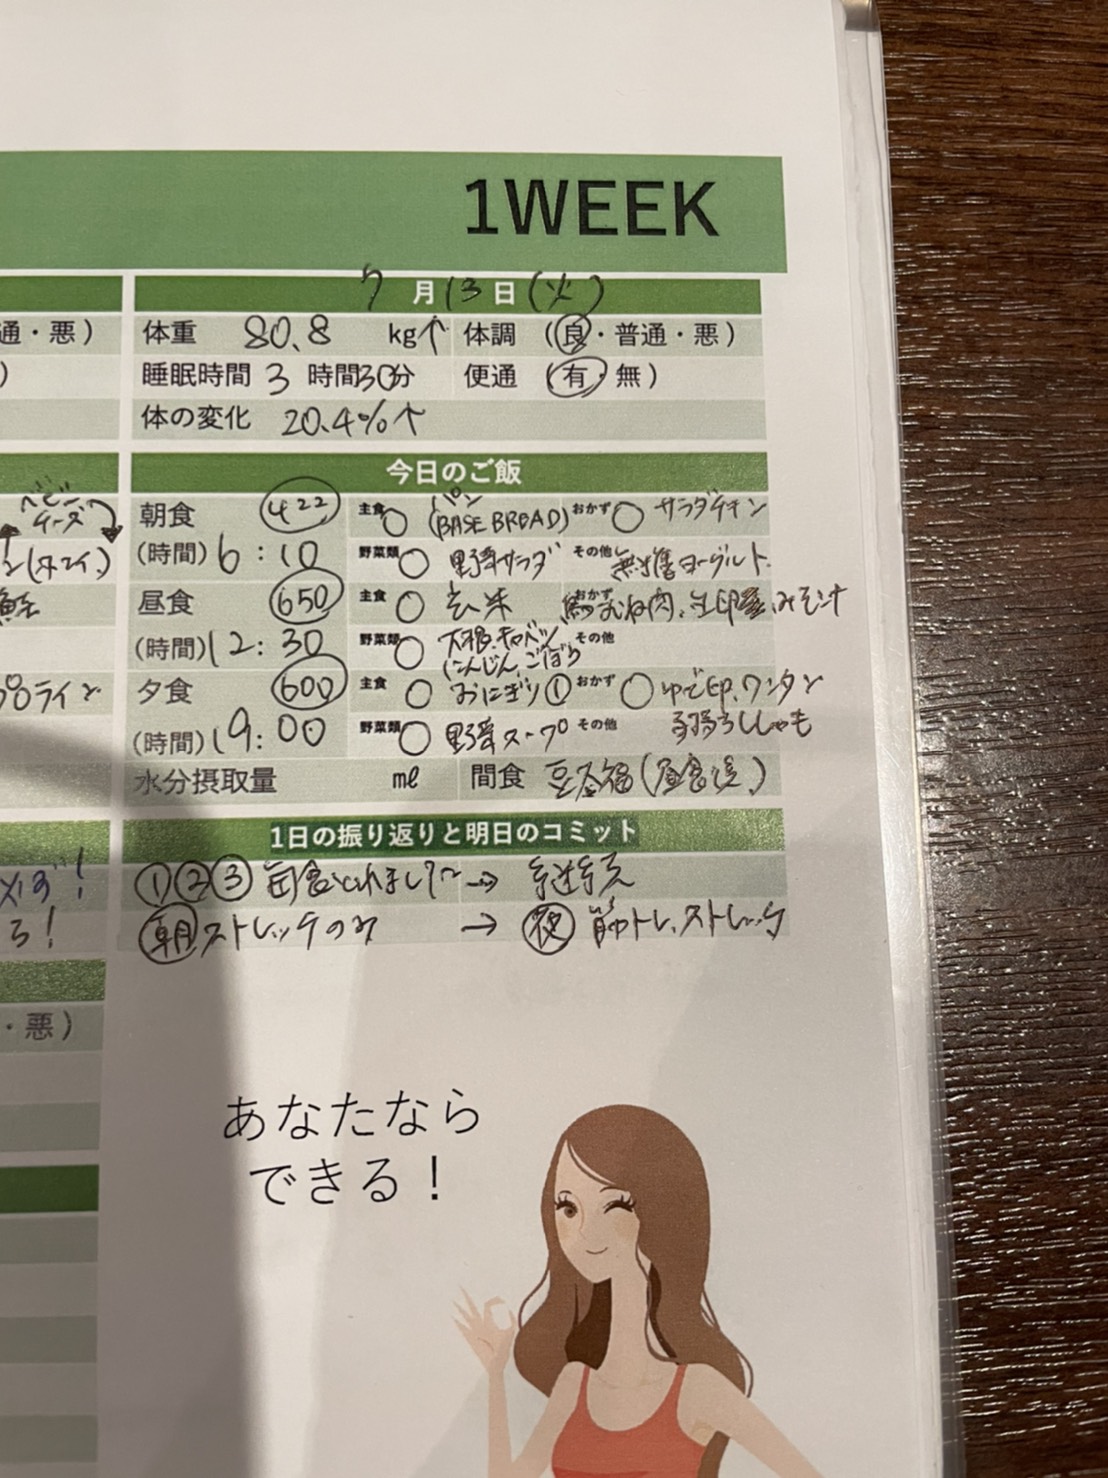 1WEEK
7月13日(火)
通・悪)
体重 80.8 kg↑ 体調 (良・普通・悪)
)
睡眠時間 3 時間30分 便通 (有・無)
体の変化 20.4%↑
今日のご飯
ベビー
チーズ
朝食 422 主食○ パン(BASE BREAD) おかず○ サラダチキン
(時間) 6:10 野菜類○ 野菜サラダ その他 無糖ヨーグルト
昼食 650 主食○ 玄米 おかず 鶏むね肉、生卵、みそ汁
(時間) 12:30 野菜類○ 大根、キャベツ その他
にんじん、ごぼう
夕食 600 主食○ おにぎり① おかず○ ゆで卵、ワンタン
(時間) 19:00 野菜類○ 野菜スープ その他 子持ちししゃも
水分摂取量 ml 間食 豆大福(昼食後)
1日の振り返りと明日のコミット
①②③ 毎食とれました → 継続
ろ!
朝 ストレッチのみ → 夜 筋トレ、ストレッチ
・悪)
あなたなら
できる!